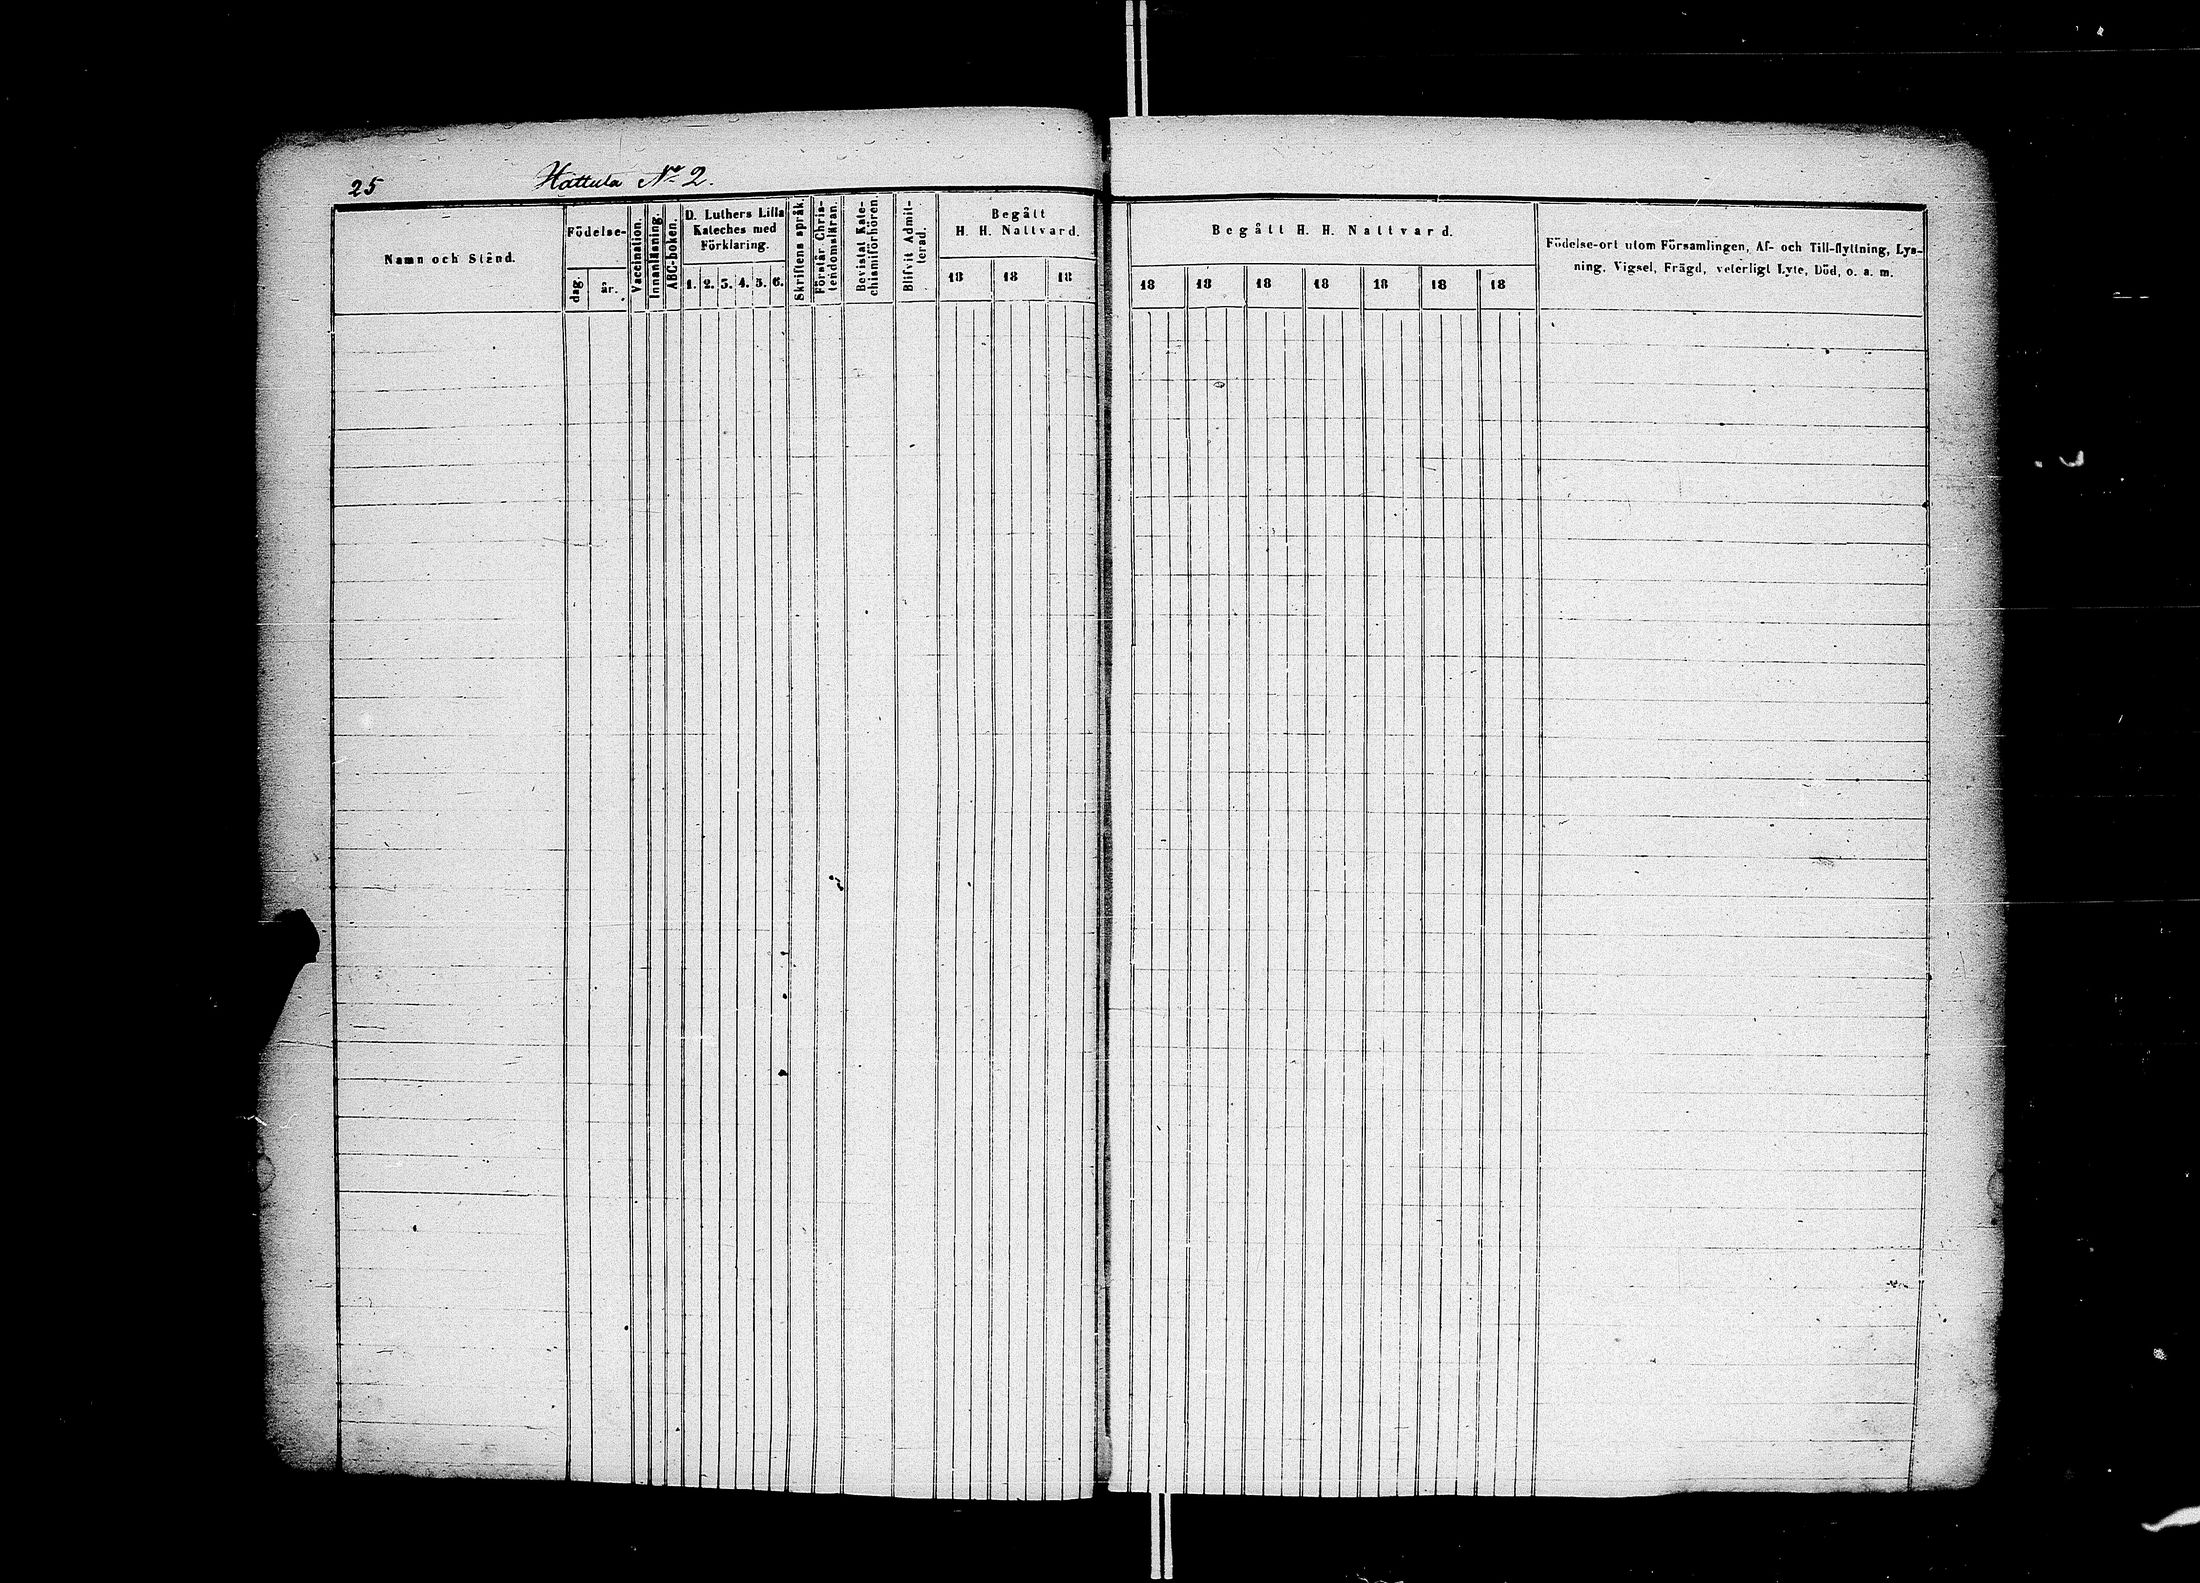 25 Hattula No 2.
Namn och Stånd.
Födelse-
dag.
år.
Vaccination.
Innanläsning.
ABC-boken.
D. Luthers Lilla
Kateches med
Förklaring.
1. 2. 3. 4. 5. 6.
Skriftens språk.
Förstår Chris-
tendomsläran.
Bevistat Kate-
chismiförhören.
Blifvit Admit-
terad.
Begått
H. H. Nattvard.
18 18 18
Begått H. H. Nattvard.
18 18 18 18 18 18 18
Födelse-ort utom Församlingen, Af- och Till-flyttning, Lys-
ning, Vigsel, Frägd, veterligt Lyte, Död, o. s. m.